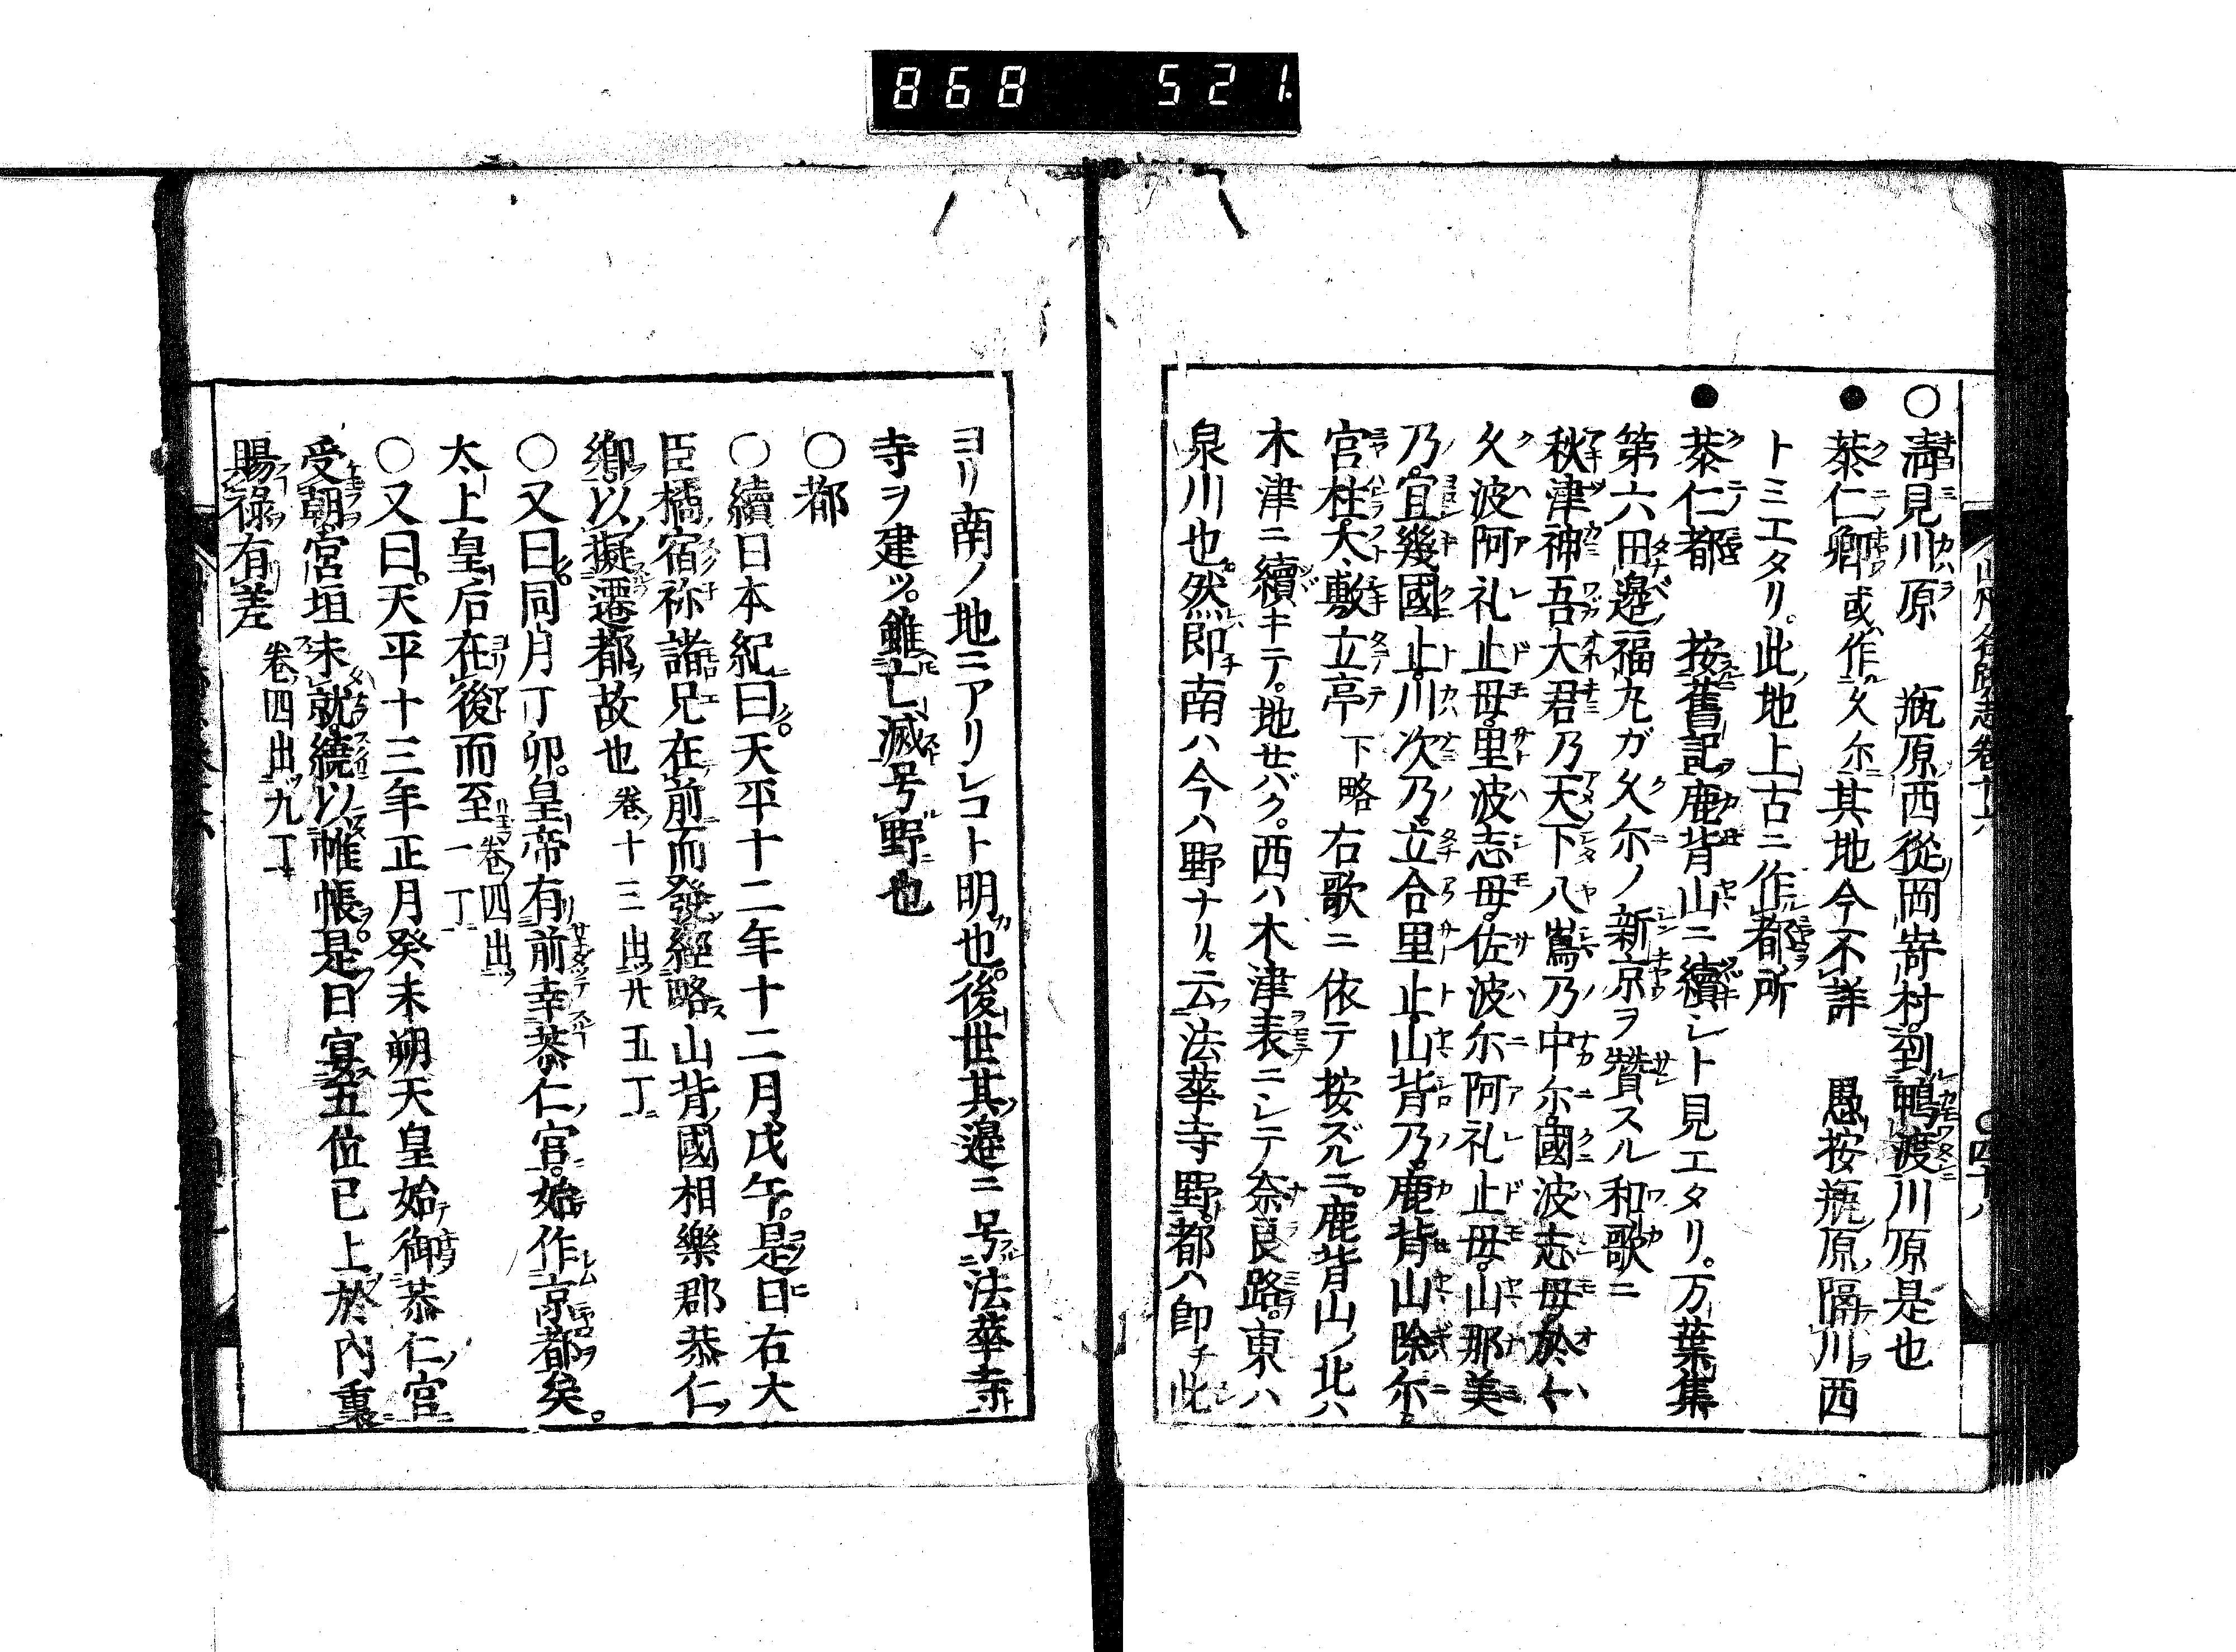 868 521
○満見川原 瓶原西從岡嵜村到鴨渡川原是也
●恭仁卿或作久尓其地今不詳 愚按瓶原隔川西
トミエタリ。此地上古ニ作都所
●恭仁都 按舊記鹿背山ニ續シト見エタリ。万葉集
第六田邉福丸ガ久尓ノ新京ヲ讃スル和歌ニ
秋津神吾大君乃天下八嶌乃中尓國波志毋於
久波阿礼止毋里波志毋佐波尓阿礼止毋山那美
乃。宜幾國止川次乃立合里止山背乃。鹿背山際尓
宮柱太敷立亭 下略 右歌ニ依テ按ズルニ。鹿背山ノ北ハ
木津ニ續キテ。地せバク。西ハ木津表ニシテ奈良路。東ハ
泉川也。然即チ南ハ今ハ野ナリ。云法華寺野。都ハ即チ此
ヨリ南ノ地ニアリシコト明也。後世其邉ニ号法華寺
寺ヲ建ツ。雖亡滅号野也
○都
○續日本紀曰。天平十二年十二月戊午。是日右大
臣橘宿祢諸兄在前而發。經略山背國相樂郡恭仁
郷以擬遷都故也 卷十三出廿五丁
○又曰。同月丁卯。皇帝有前幸恭仁宮。始作京都矣。
太上皇后在後而至 卷四出一丁
○又曰。天平十三年正月癸未朔天皇始御恭仁宮
受朝宮垣未就繞以帷帳。是日宴五位已上於內裏
賜祿有差 卷四出九丁